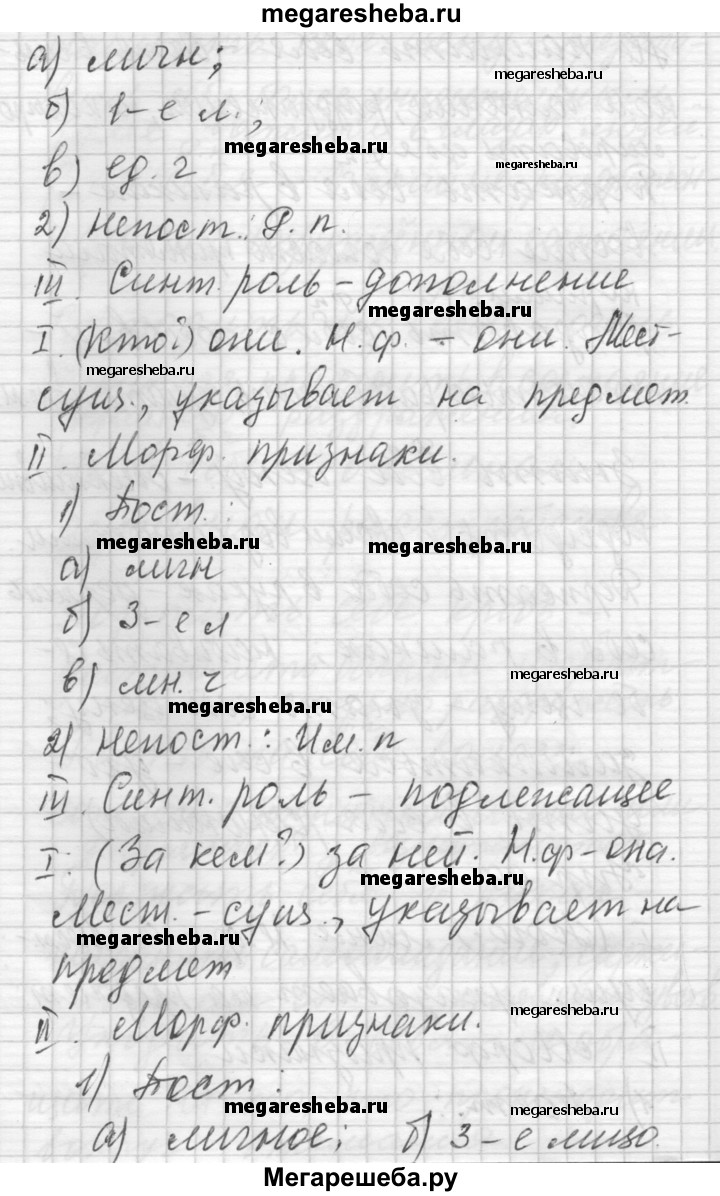 megaresheba.ru
а) личн;
megaresheba.ru
б) 1-е л.;
megaresheba.ru
в) ед. ч
megaresheba.ru
2) Непост.: Р. п.
III. Синт. роль – дополнение
megaresheba.ru
I. (Кто?) они. Н.ф. – они. Мест-
megaresheba.ru
сущ., указывает на предмет.
II. Морф. признаки.
1) Пост.:
megaresheba.ru megaresheba.ru
а) личн
б) 3-е л
в) мн. ч
megaresheba.ru
megaresheba.ru
2) Непост.: Им. п
III. Синт. роль – подлежащее
I: (За кем?) за ней. Н.ф-она.
megaresheba.ru
Мест.-сущ., указывает на
megaresheba.ru
предмет
II. Морф. признаки.
megaresheba.ru
1) Пост:
megaresheba.ru megaresheba.ru
а) личное; б) 3-е лицо.
Мегарешеба.ру